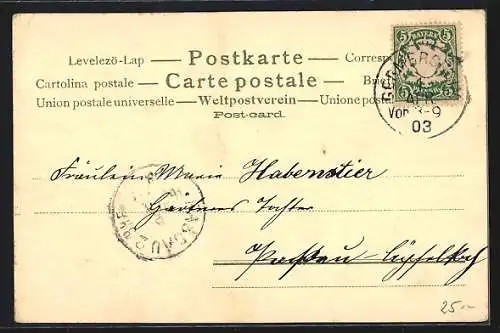 Levelezö-Lap — Postkarte — Correspo
Cartolina postale — Carte postale — Brief
Union postale universelle — Weltpostverein — Unione posta
Post-card.
5 BAYERN 5
Vor 8-9
03
Fräulein Marie Habenstier
Gärtners Tochter
Passau
25.-